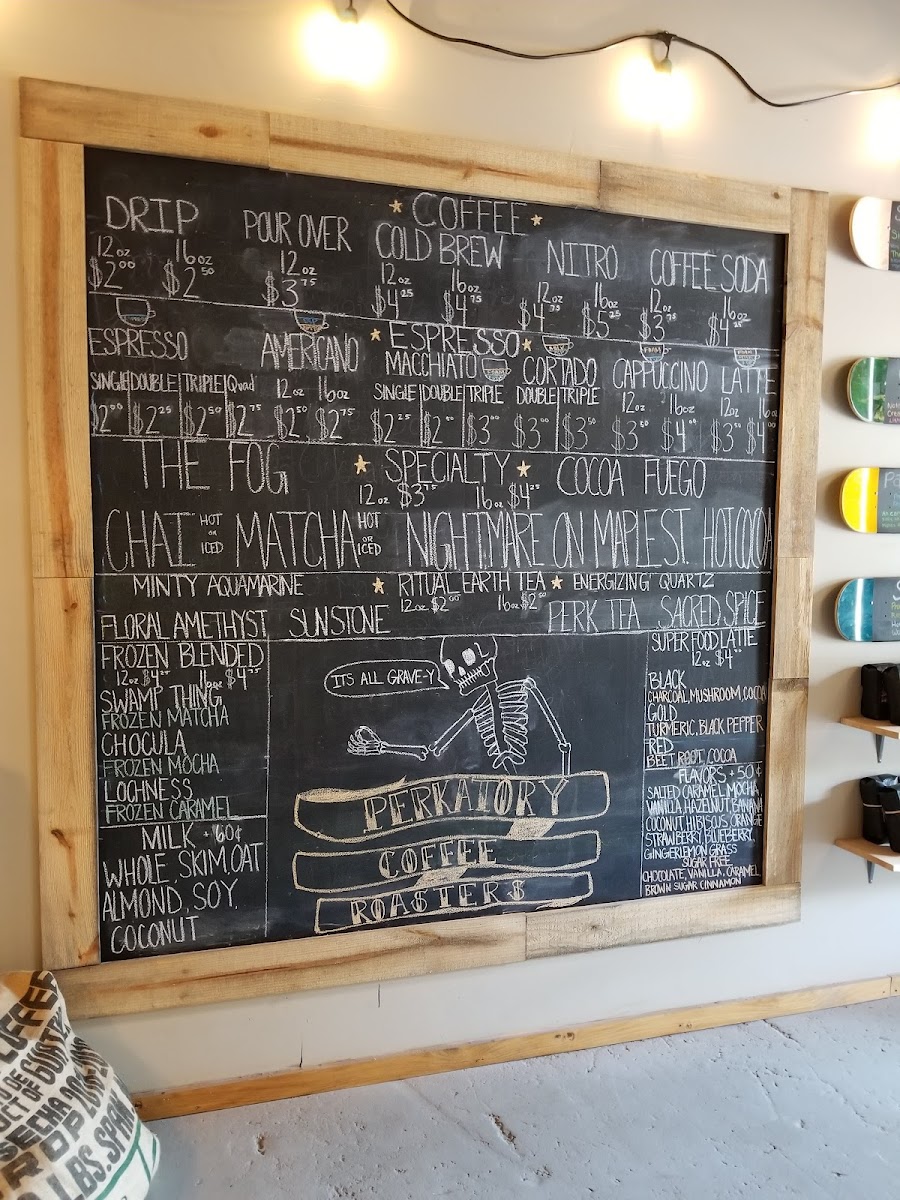 COFFEE
DRIP POUR OVER COLD BREW NITRO COFFEE SODA
12oz 16oz 12oz 12oz 16oz 12oz 16oz 12oz 16oz
$2.00 $2.50 $3.75 $4.25 $4.75 $4.75 $5.25 $3.75 $4.25
ESPRESSO
ESPRESSO AMERICANO MACCHIATO CORTADO CAPPUCCINO LATTE
SINGLE DOUBLE TRIPLE Quad 12oz 16oz SINGLE DOUBLE TRIPLE DOUBLE TRIPLE 12oz 16oz 12oz 16oz
$2.00 $2.25 $2.50 $2.75 $2.50 $2.75 $2.25 $2 $3.00 $3 $3.50 $3.50 $4 $3.50 $4
THE FOG SPECIALTY COCOA FUEGO
12oz $3.75 16oz $4.25
CHAI HOT OR ICED MATCHA HOT OR ICED NIGHTMARE ON MAPLE ST. HOT COCOA
MINTY AQUAMARINE RITUAL EARTH TEA ENERGIZING QUARTZ
12oz $2.00 16oz $2.50
FLORAL AMETHYST SUNSTONE PERK TEA SACRED SPICE
FROZEN BLENDED
12oz $4.25 16oz $4.75
SWAMP THING
FROZEN MATCHA
CHOCULA
FROZEN MOCHA
LOCHNESS
FROZEN CARAMEL
MILK +60¢
WHOLE, SKIM, OAT
ALMOND, SOY,
COCONUT
ITS ALL GRAVE-Y
PERKATORY
COFFEE
ROASTERS
SUPER FOOD LATTE
12oz $4
BLACK
CHARCOAL, MUSHROOM, COCOA
GOLD
TURMERIC, BLACK PEPPER
RED
BEET ROOT, COCOA
FLAVORS +50¢
SALTED CARAMEL, MOCHA,
VANILLA, HAZELNUT, BANANA
COCONUT, HIBISCUS, ORANGE
STRAWBERRY, BLUEBERRY,
GINGER LEMON GRASS
SUGAR FREE
CHOCOLATE, VANILLA, CARAMEL
BROWN SUGAR CINNAMON
COFFEE
LBS. SPAN